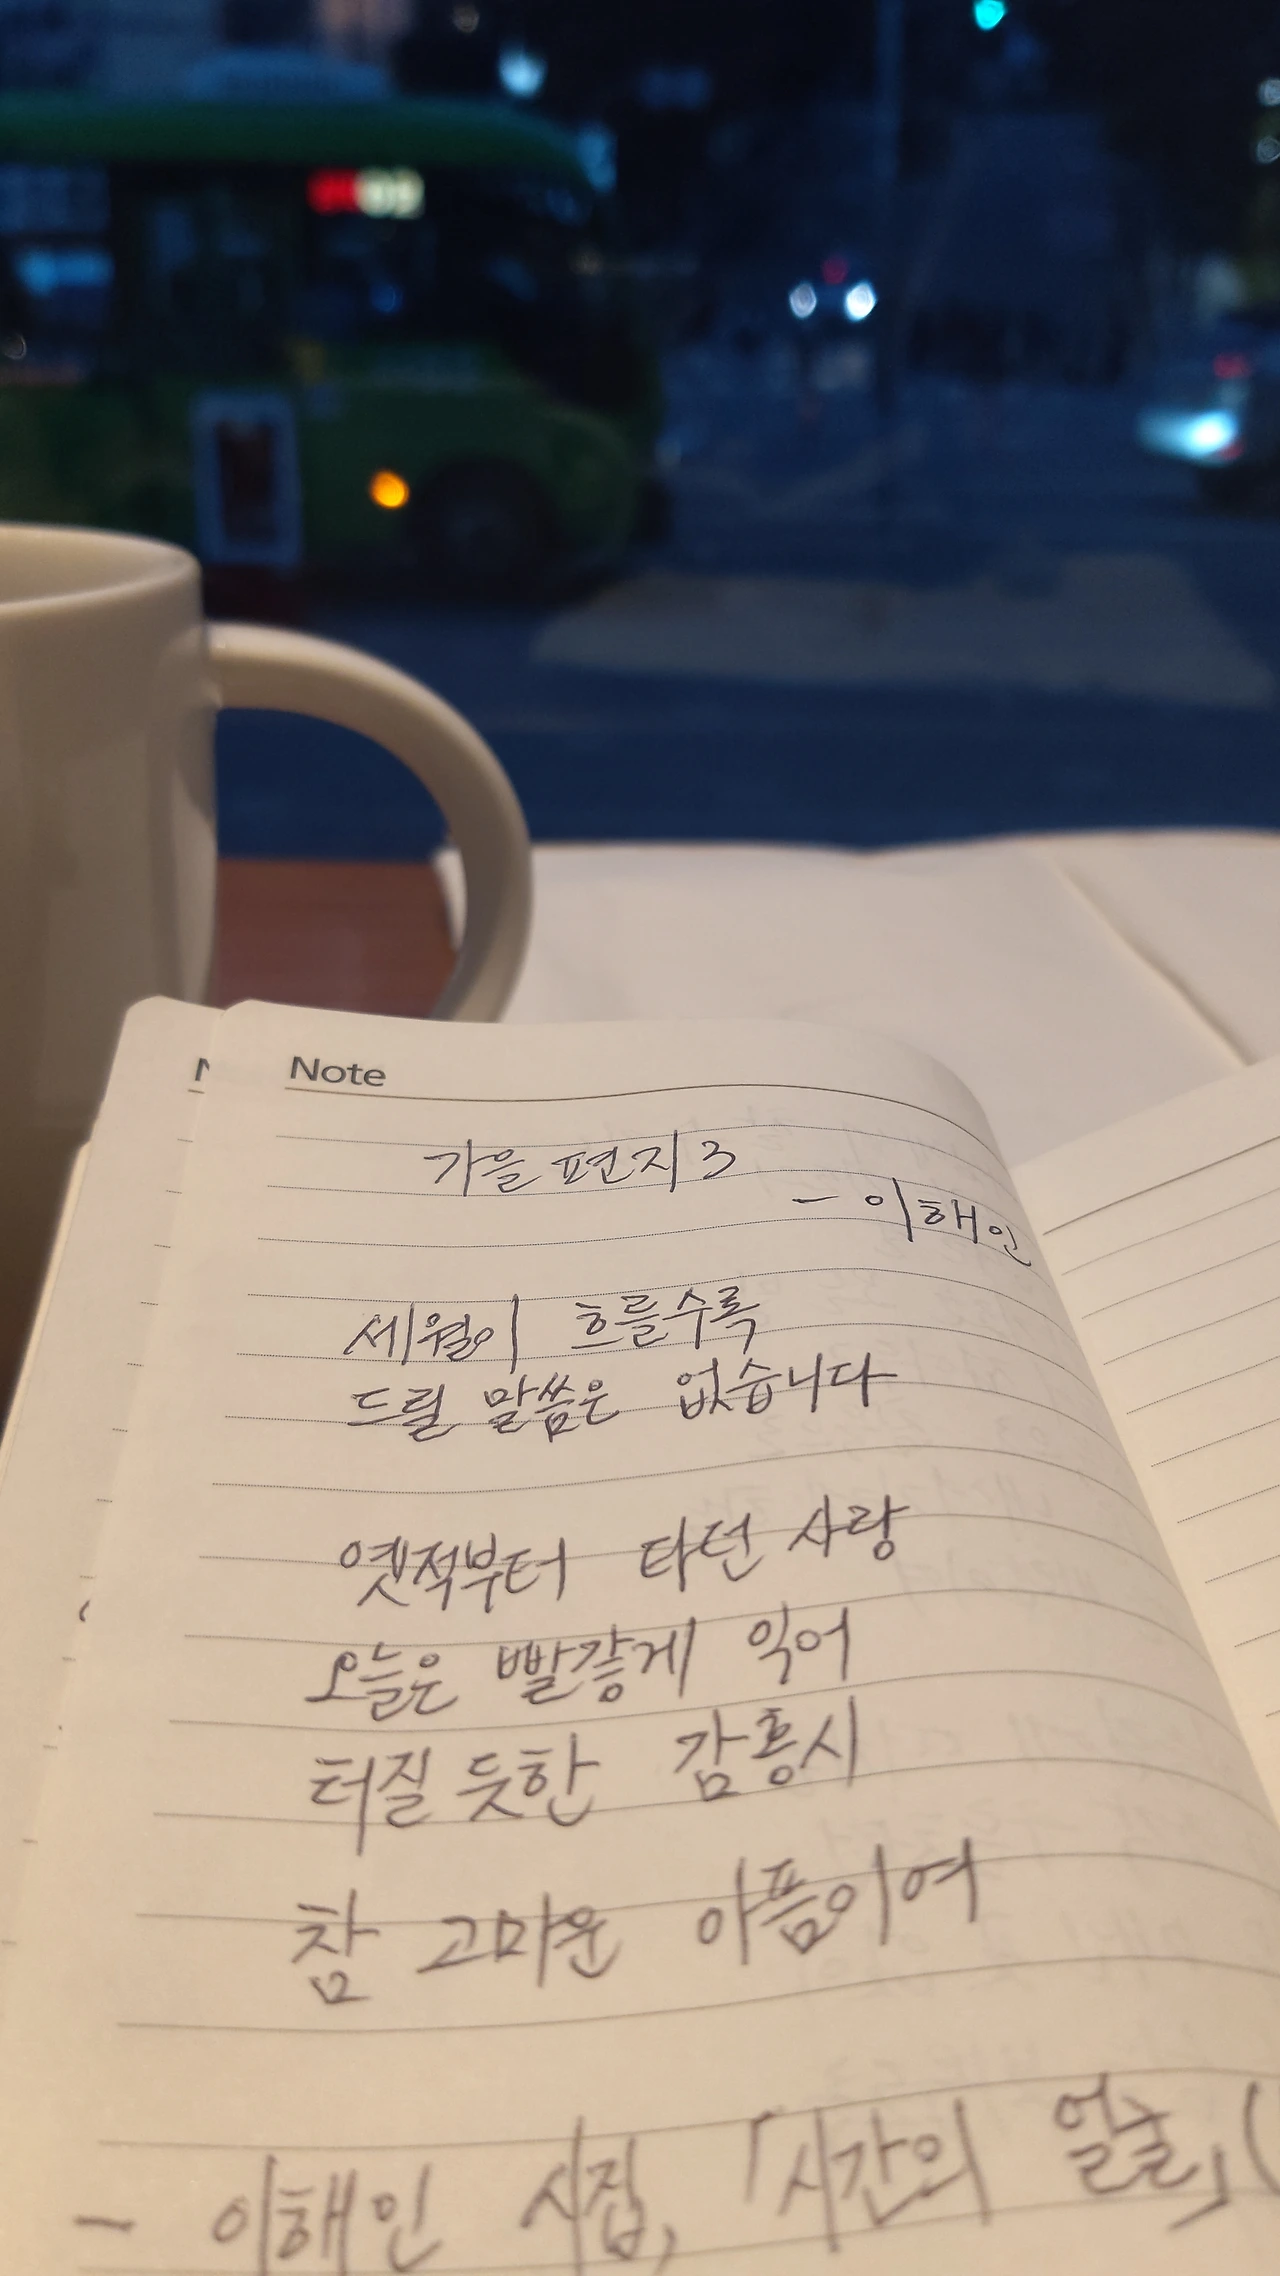 Note
가을 편지 3
- 이해인
세월이 흐를수록
드릴 말씀은 없습니다
옛적부터 타던 사랑
오늘은 빨갛게 익어
터질 듯한 감홍시
참 고마운 아픔이여
- 이해인 시집, 「시간의 얼굴」(